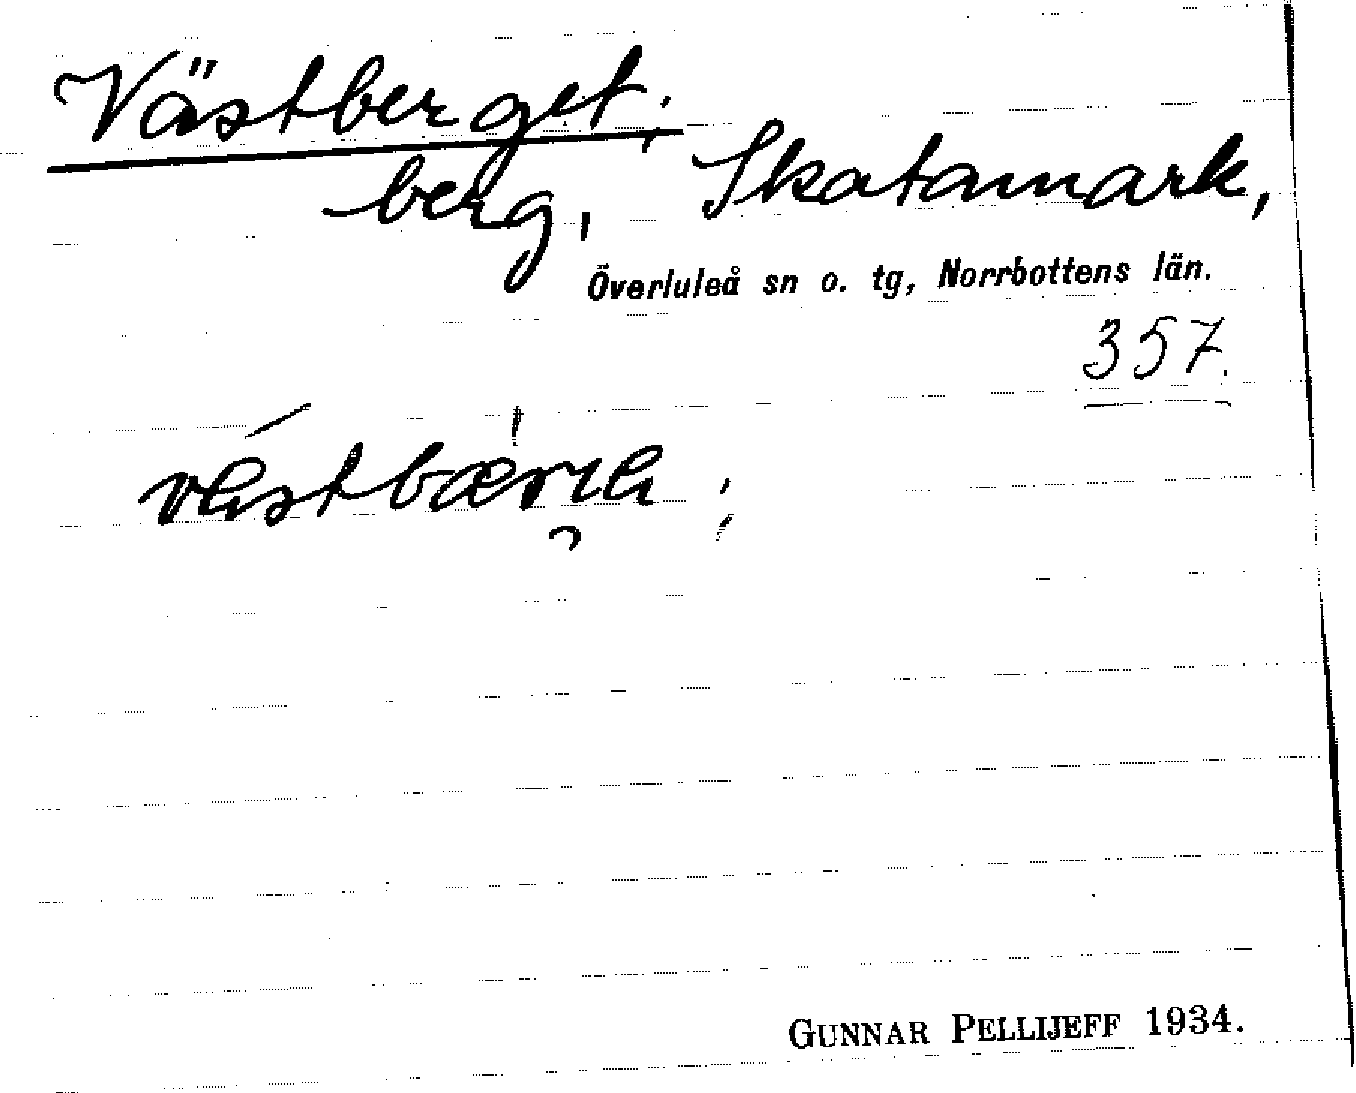 Västberget;
berg, Skatamark,
Överluleå sn o. tg, Norrbottens län.
357.
GUNNAR PELLIJEFF 1934.